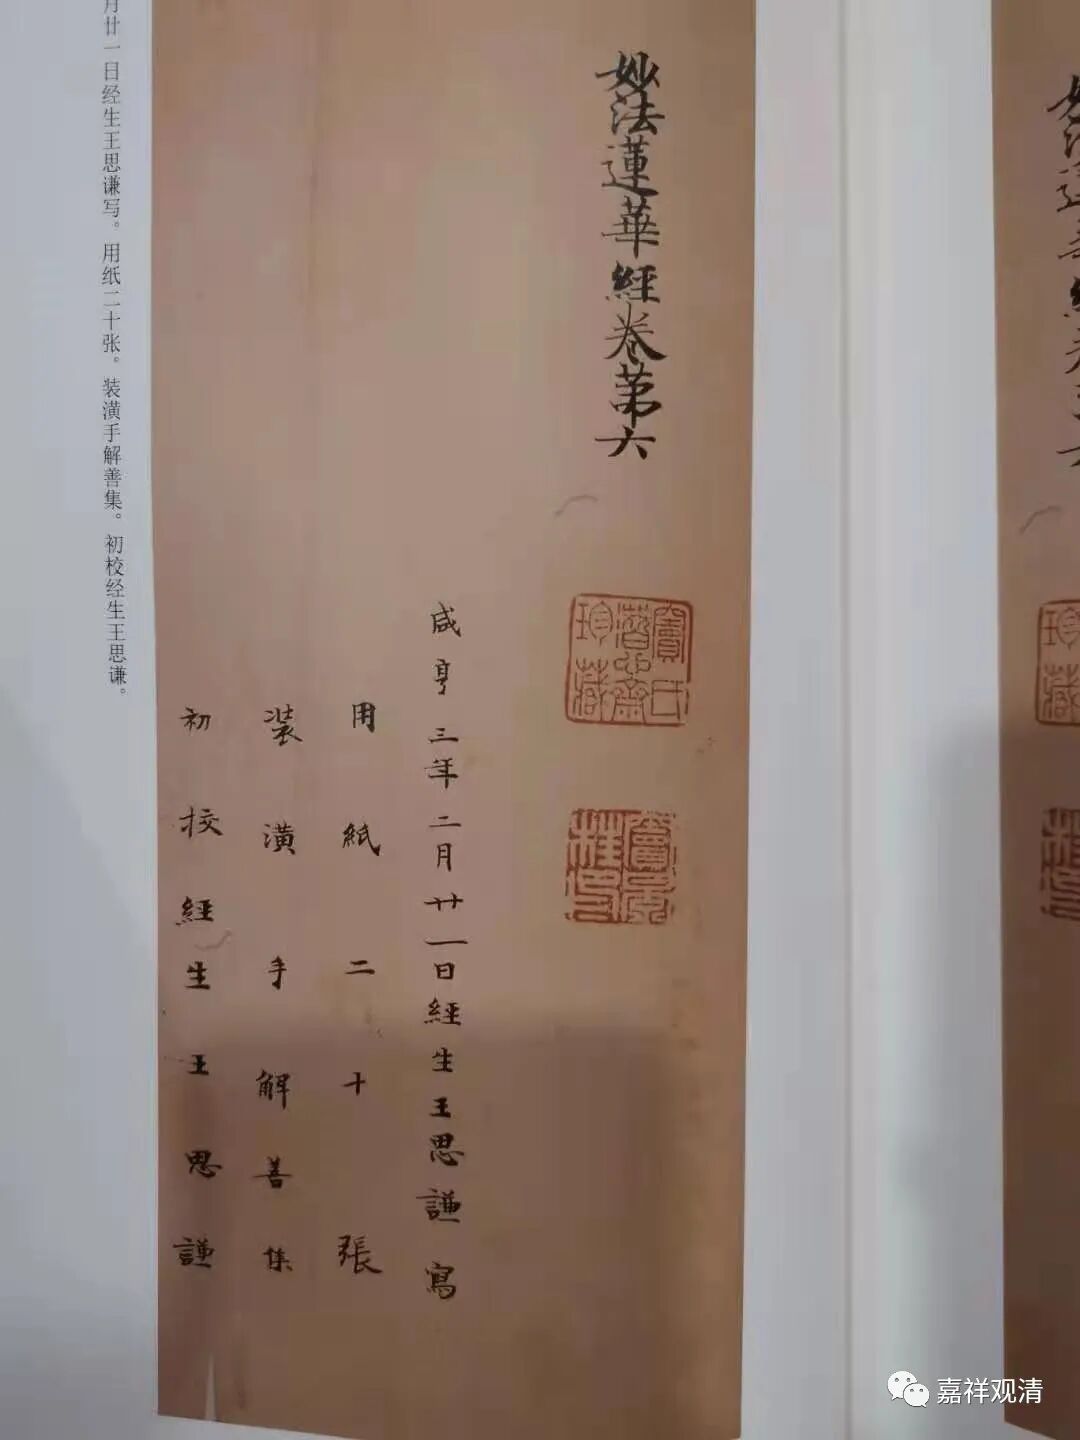 妙法蓮華經卷第六
竇氏
晉齋
珍藏
咸亨三年二月廿一日經生王思謙寫
用紙二十張
装潢手解善集
初校經生王思謙
月廿一日经生王思谦写。用纸二十张。装潢手解善集。初校经生王思谦。
嘉祥观清